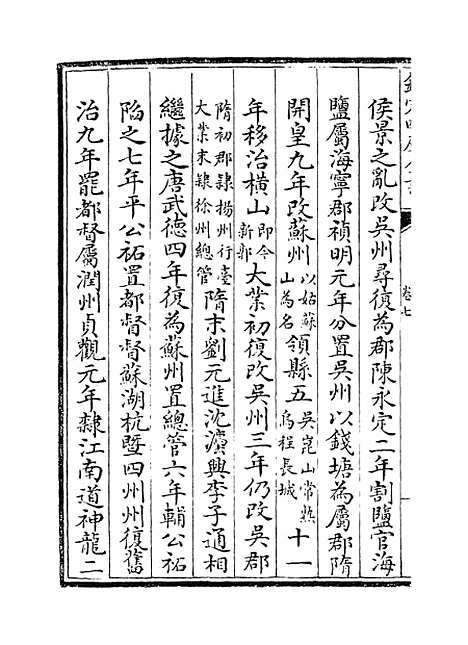 侯景之亂改吳州尋復為郡陳永定二年割鹽官海
鹽屬海寧郡禎明元年分置吳州以錢塘為屬郡隋
開皇九年改蘇州以姑蘇山為名領縣五吳崑山常熟烏程長城十一
年移治橫山即今新郭大業初復改吳州三年仍改吳郡
隋初郡隸揚州行臺大業末隸徐州總管隋末劉元進沈灋興李子通相
繼據之唐武德四年復為蘇州置總管六年輔公祏
陷之七年平公祏置都督督蘇湖杭暨四州州復舊
治九年罷都督屬潤州貞觀元年隸江南道神龍二
卷七